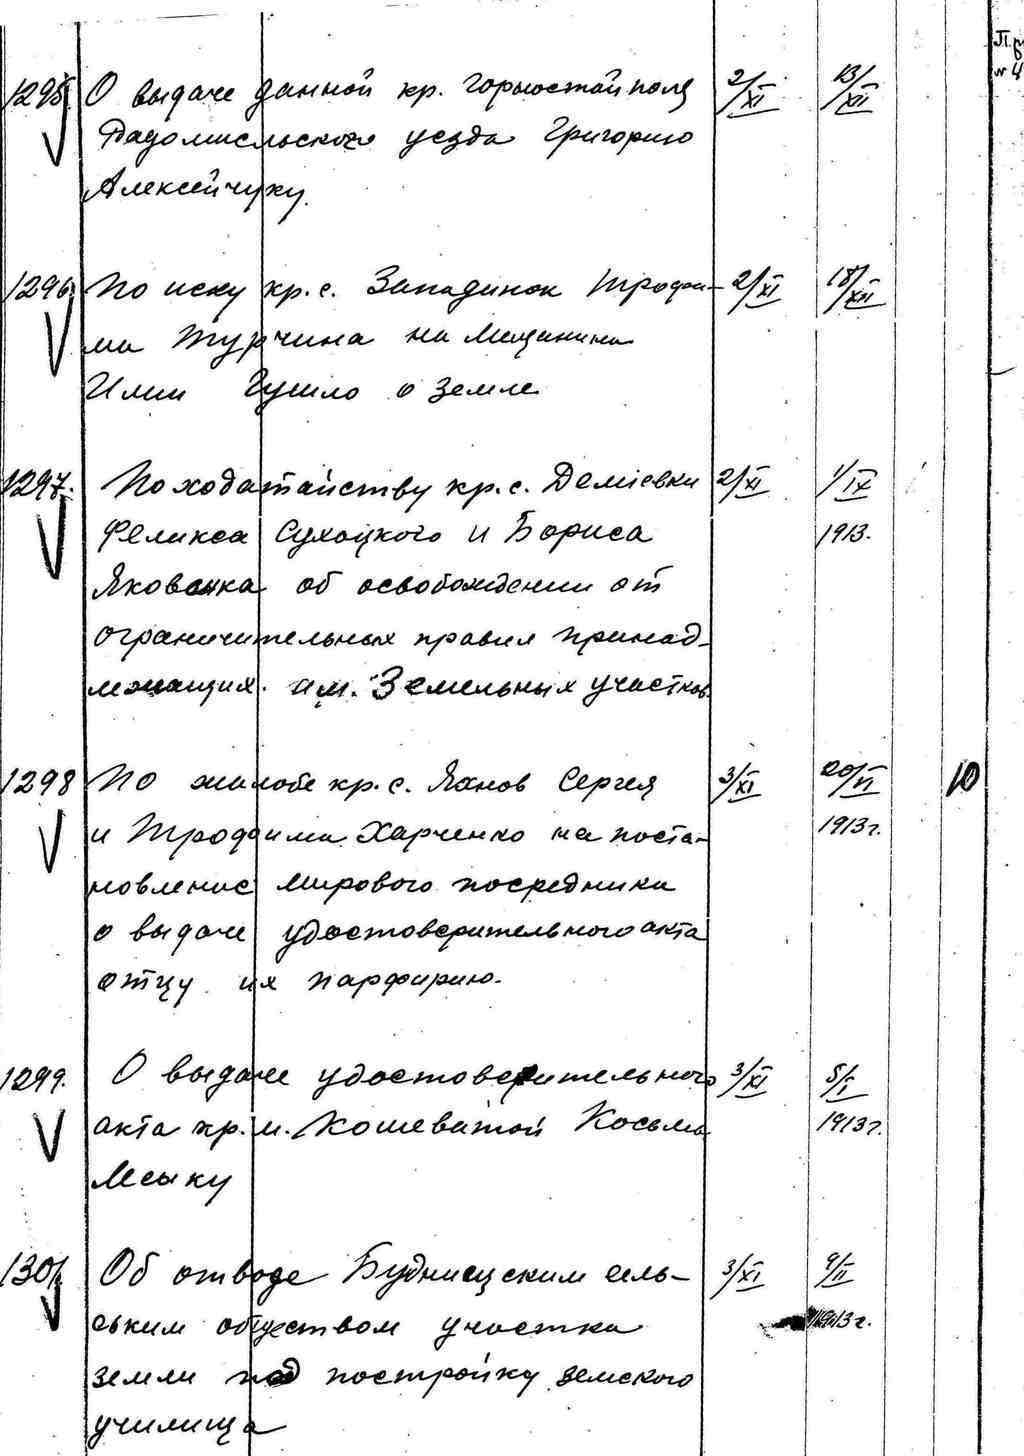 1295. О выдаче данной кр. Горностайполя 2/XI 13/XII
Радомисльского уезда Григорию
Алексейчуку.
1296. По иску кр. с. Западинок Трофи- 2/XI 18/XII
ма Турчина на мещанина
Илии Гушло о земле
1297. По ходатайству кр. с. Деміевки 2/XI 1/IX
Феликса Сухоцкого и Бориса 1913.
Яковенка об освобождении от
ограничительных правил принад-
лежащих им. Земельных участков
1298 По жалобе кр. с. Янов Сергея 3/XI 20/VI 10
и Трофима Харченко на поста- 1913 г.
новление мирового посредника
о выдаче удостоверительного акта
отцу их Парфирию.
1299. О выдаче удостоверительного 3/XI 5/I
акта кр. м. Кошеватой Косьма 1913 г.
Мсыку
1301. Об отводе Будницским сель- 3/XI 9/II
ським обществом участка 1913 г.
земли под постройку земского
училища